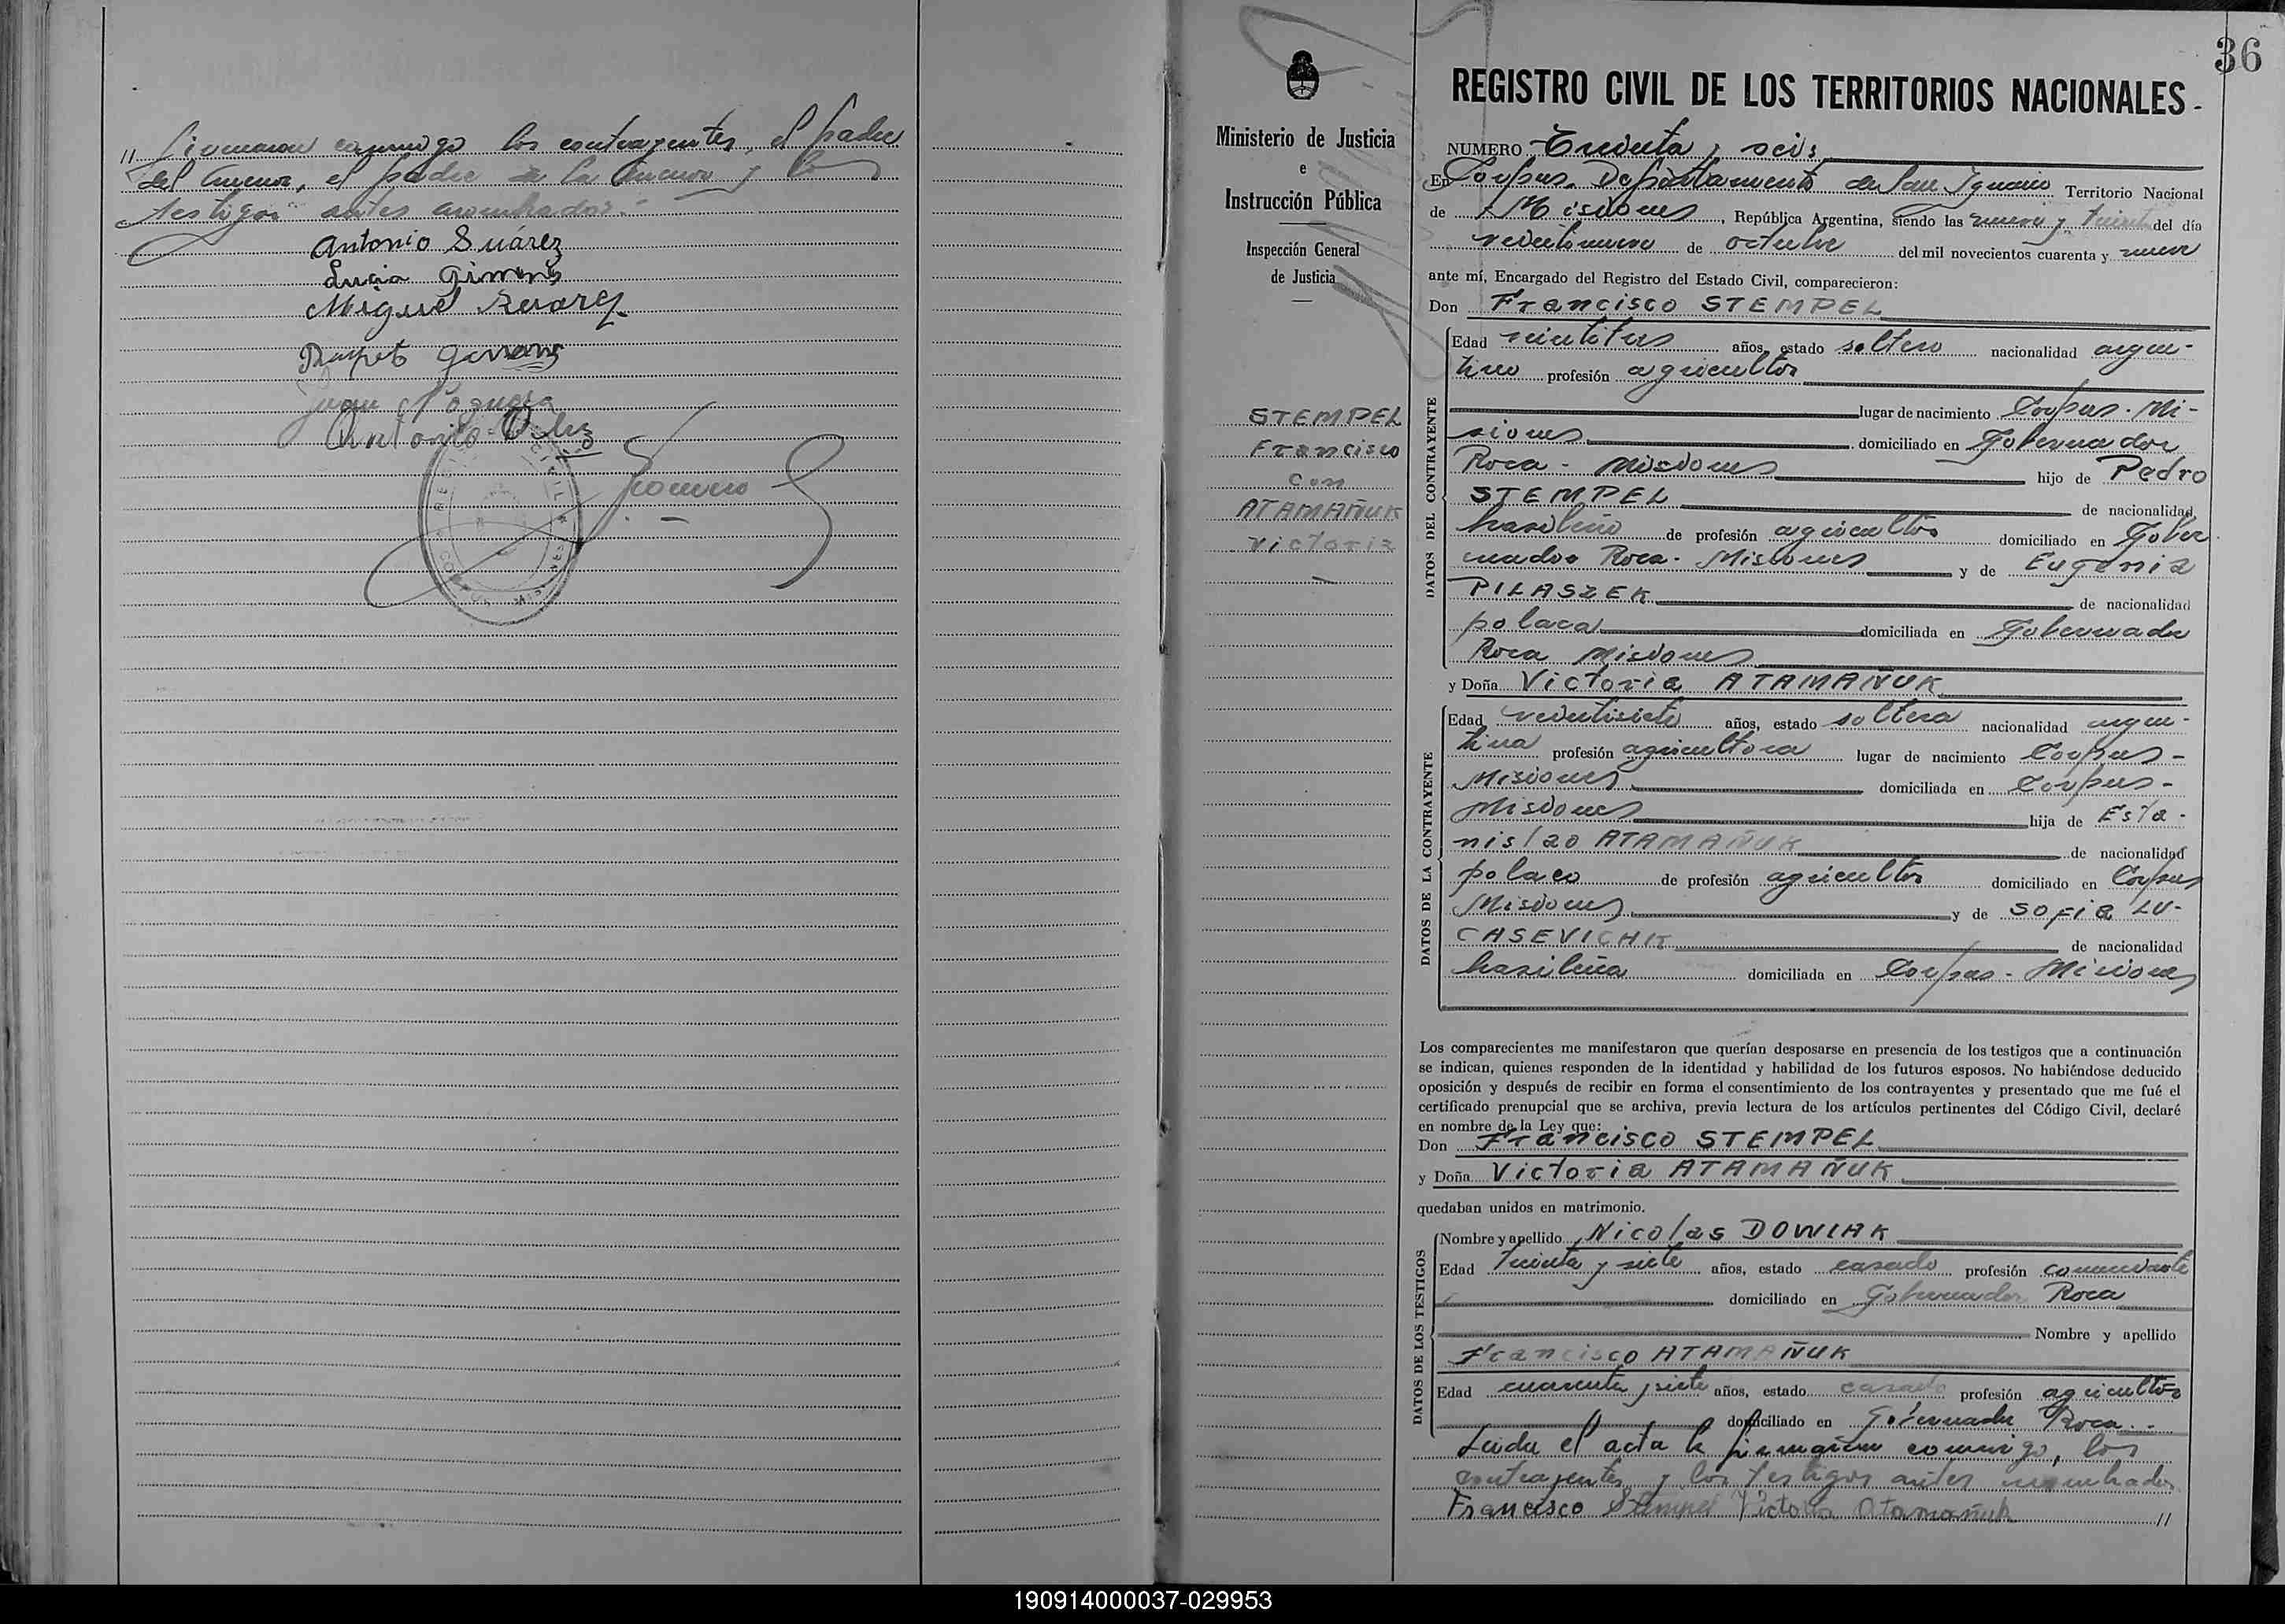 // firmaron conmigo los contrayentes, el padre
del menor, el padre de la menor y los
testigos antes nombrados.-
Antonio Suárez
Lucia Gimenez
Miguel Suarez
Juan Noguera
Antonio
36
Ministerio de Justicia
e
Instrucción Pública
Inspección General
de Justicia
STEMPEL
Francisco
con
ATAMAÑUK
Victoria
REGISTRO CIVIL DE LOS TERRITORIOS NACIONALES-
NUMERO Treinta y seis
En Corpus, Departamento de San Ignacio Territorio Nacional
de Misiones, República Argentina, siendo las nueve y treinta del día
veintinueve de octubre del mil novecientos cuarenta y nueve
ante mí, Encargado del Registro del Estado Civil, comparecieron:
Don Francisco STEMPEL
DATOS DEL CONTRAYENTE
Edad veintitres años, estado soltero nacionalidad argen-
tino profesión agricultor
lugar de nacimiento Corpus- Mi-
siones domiciliado en Gobernador
Roca - Misiones hijo de Pedro
STEMPEL de nacionalidad
brasileño de profesión agricultor domiciliado en Gober
nador Roca- Misiones y de Eugenia
PILASZEK de nacionalidad
polaca domiciliada en Gobernador
Roca Misiones
y Doña Victoria ATAMAÑUK
DATOS DE LA CONTRAYENTE
Edad veintisiete años, estado soltera nacionalidad argen-
tina profesión agricultora lugar de nacimiento Corpus-
Misiones domiciliada en Corpus-
Misiones hija de Esta-
nislao ATAMAÑUK de nacionalidad
polaco de profesión agricultor domiciliado en Corpus
Misiones y de Sofia LU-
CASEVICHK de nacionalidad
brasileña domiciliada en Corpus- Misiones
Los comparecientes me manifestaron que querían desposarse en presencia de los testigos que a continuación
se indican, quienes responden de la identidad y habilidad de los futuros esposos. No habiéndose deducido
oposición y después de recibir en forma el consentimiento de los contrayentes y presentado que me fué el
certificado prenupcial que se archiva, previa lectura de los artículos pertinentes del Código Civil, declaré
en nombre de la Ley que:
Don Francisco STEMPEL
y Doña Victoria ATAMAÑUK
quedaban unidos en matrimonio.
DATOS DE LOS TESTIGOS
Nombre y apellido Nicolas DOWIAK
Edad treinta y siete años, estado casado profesión comerciante
domiciliado en Gobernador Roca
Nombre y apellido
Francisco ATAMAÑUK
Edad cuarenta y siete años, estado casado profesión agricultor
domiciliado en Gobernador Roca.-
Leida el acta la firmaron conmigo, los
contrayentes y los testigos antes nombrados
Francisco Stempel Victoria Atamañuk //
190914000037-029953